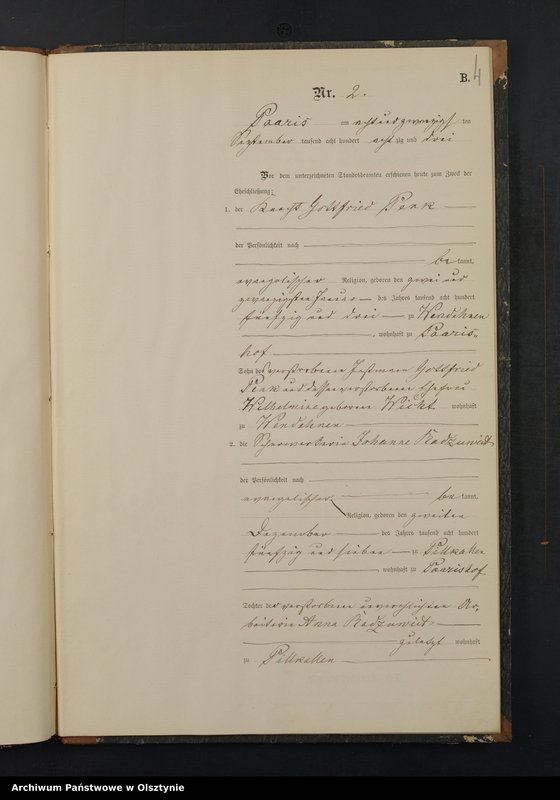 B. 4
Nr. 2.
Paaris am acht und zwanzigsten
September tausend acht hundert acht zig und drei
Vor dem unterzeichneten Standesbeamten erschienen heute zum Zweck der
Eheschließung:
1. der Knecht Gottfried Penk
der Persönlichkeit nach
be kannt,
evangelischer Religion, geboren den zwei und
zwanzigsten Januar des Jahres tausend acht hundert
fünfzig und drei zu Wendehnen
, wohnhaft zu Paaris-
hof
Sohn des verstorbenen Instmann Gottfried
Penk und dessen verstorbene Ehefrau
Wilhelmine geborene Wicht wohnhaft
zu Wendehnen
2. die Scharwerkerin Johanne Radzuweit
der Persönlichkeit nach
be kannt,
evangelischer
Religion, geboren den zweiten
Dezember des Jahres tausend acht hundert
fünfzig und sieben zu Pillkallen
, wohnhaft zu Paarishof
Tochter der verstorbene unverehlichten Ar-
beiterin Anna Radzuweit
zuletzt wohnhaft
zu Pillkallen
Archiwum Państwowe w Olsztynie